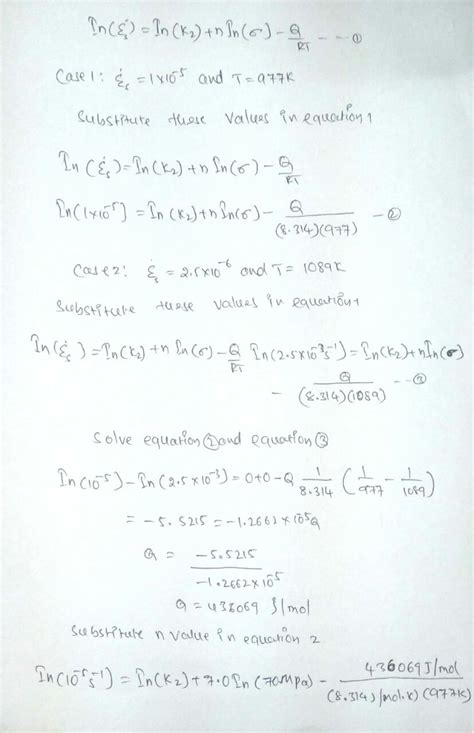 ln(ε̇s) = ln(K2) + n ln(σ) - Q/RT --- ①
Case 1: ε̇s = 1×10^5 and T = 977K
Substitute these values in equation 1
ln(ε̇s) = ln(K2) + n ln(σ) - Q/RT
ln(1×10^-5) = ln(K2) + n ln(σ) - Q/(8.314)(977) - ②
Case 2: ε̇s = 2.5×10^-6 and T = 1089K
Substitute these values in equation 1
ln(ε̇s) = ln(K2) + n ln(σ) - Q/RT ln(2.5×10^-3 s^-1) = ln(K2) + n ln(σ)
- Q/(8.314)(1089) --- ③
Solve equation ② and equation ③
ln(10^-5) - ln(2.5×10^-3) = 0+0 - Q 1/8.314 (1/977 - 1/1089)
= -5.5215 = -1.2662×10^5 Q
Q = -5.5215/-1.2662×10^5
Q = 436069 J/mol
Substitute n value in equation 2
ln(10^-5 s^-1) = ln(K2) + 7.0 ln(70MPa) - 436069 J/mol/(8.314 J/mol.K)(977K)